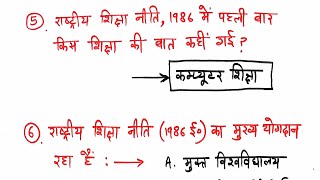 ⑤. राष्ट्रीय शिक्षा नीति, 1986 में पहली बार
किस शिक्षा की बात कही गई?
→ कम्प्यूटर शिक्षा
⑥. राष्ट्रीय शिक्षा नीति (1986 ई०) का मुख्य योगदान
रहा है : → A. मुक्त विश्वविद्यालय